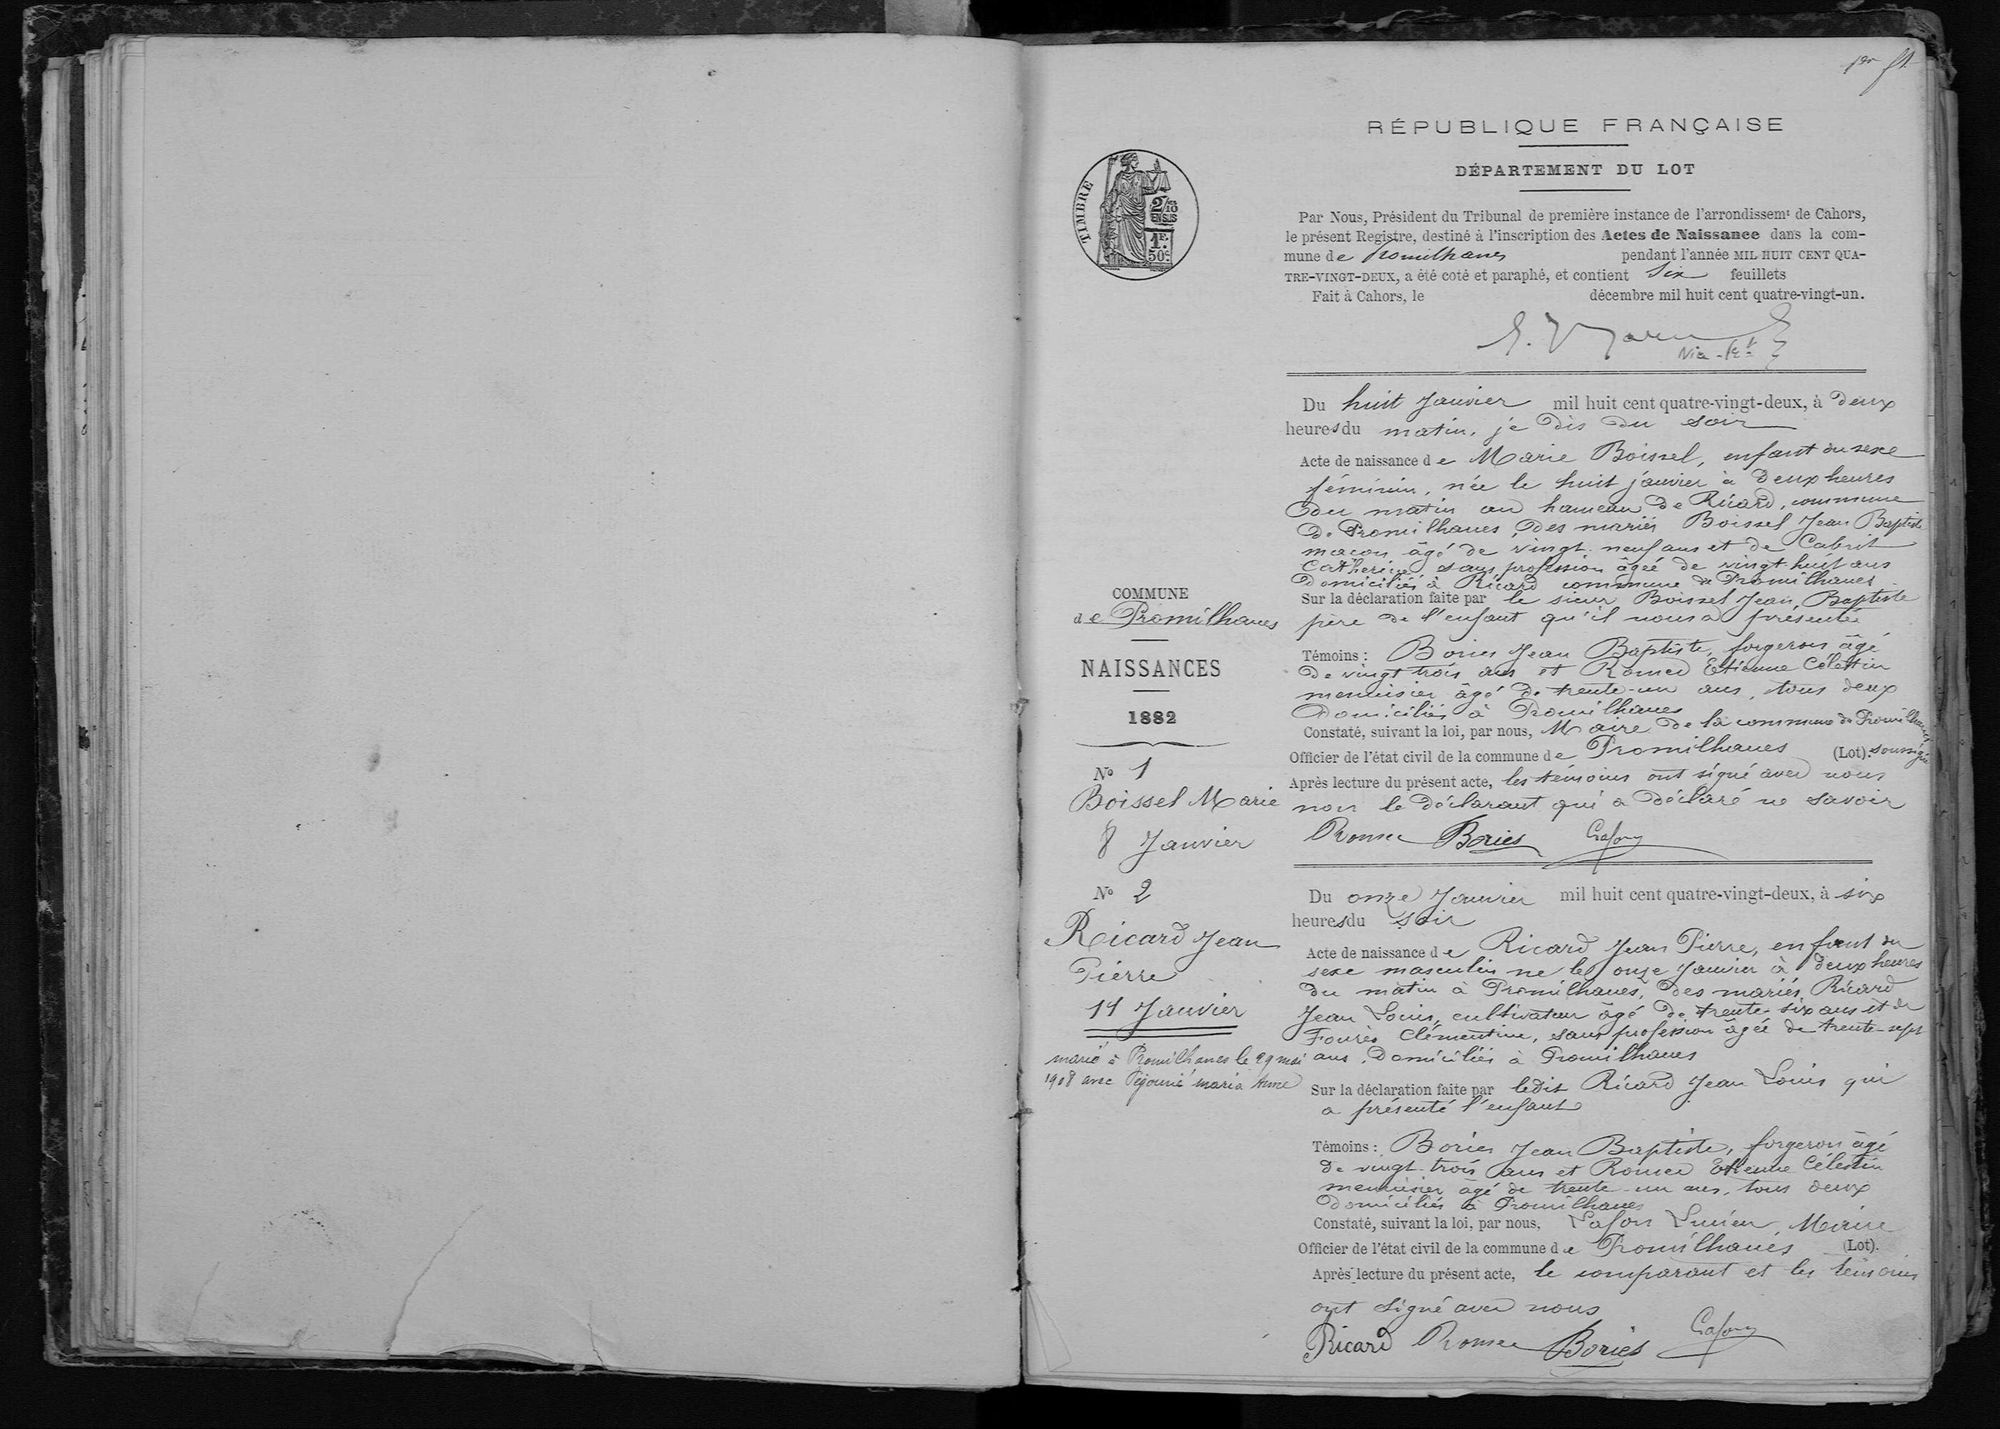 1er ft
RÉPUBLIQUE FRANÇAISE
DÉPARTEMENT DU LOT
TIMBRE
2/10
EN SUS
1F.
50c.
Par Nous, Président du Tribunal de première instance de l'arrondissemt de Cahors,
le présent Registre, destiné à l'inscription des Actes de Naissance dans la com-
mune de Promilhanes pendant l'année MIL HUIT CENT QUA-
TRE-VINGT-DEUX, a été coté et paraphé, et contient Six feuillets
Fait à Cahors, le décembre mil huit cent quatre-vingt-un.
COMMUNE
de Promilhanes
NAISSANCES
1882
No 1
Boissel Marie
8 Janvier
Du huit Janvier mil huit cent quatre-vingt-deux, à deux
heures du matin, je dis du soir
Acte de naissance de Marie Boissel, enfant du sexe
féminin, née le huit janvier à deux heures
du matin au hameau de Ricard, commune
de Promilhanes, des mariés Boissel Jean Baptiste
maçon âgé de vingt-neuf ans et de Cabrit
Catherine sans profession âgée de vingt huit ans
domiciliés à Ricard commune de Promilhanes
Sur la déclaration faite par le sieur Boissel Jean Baptiste
père de l'enfant qu'il nous a présentée
Témoins : Bories Jean Baptiste, forgeron âgé
de vingt trois ans et Romec Etienne Célestin
menuisier âgé de trente-un ans, tous deux
domiciliés à Promilhanes
Constaté, suivant la loi, par nous, Maire de la commune de Promilhanes
Officier de l'état civil de la commune de Promilhanes (Lot). soussigné
Après lecture du présent acte, les témoins ont signé avec nous
non le déclarant qui a déclaré ne savoir
Romec Bories Lafon
No 2
Ricard Jean
Pierre
11 Janvier
marié à Promilhanes le 29 mai
1908 avec Pégourié maria Anne
Du onze Janvier mil huit cent quatre-vingt-deux, à six
heures du soir
Acte de naissance de Ricard Jean Pierre, enfant du
sexe masculin né le onze Janvier à deux heures
du matin à Promilhanes, des mariés Ricard
Jean Louis, cultivateur âgé de trente-six ans et de
Fourès Clémentine, sans profession âgée de trente-sept
ans, domiciliés à Promilhanes
Sur la déclaration faite par ledit Ricard Jean Louis qui
a présenté l'enfant
Témoins : Bories Jean Baptiste, forgeron âgé
de vingt-trois ans et Romec Etienne Célestin
menuisier âgé de trente-un ans, tous deux
domiciliés à Promilhanes
Constaté, suivant la loi, par nous, Lafon Lucien, Maire
Officier de l'état civil de la commune de Promilhanes (Lot).
Après lecture du présent acte, le comparant et les témoins
ont signé avec nous
Ricard Romec Bories Lafon